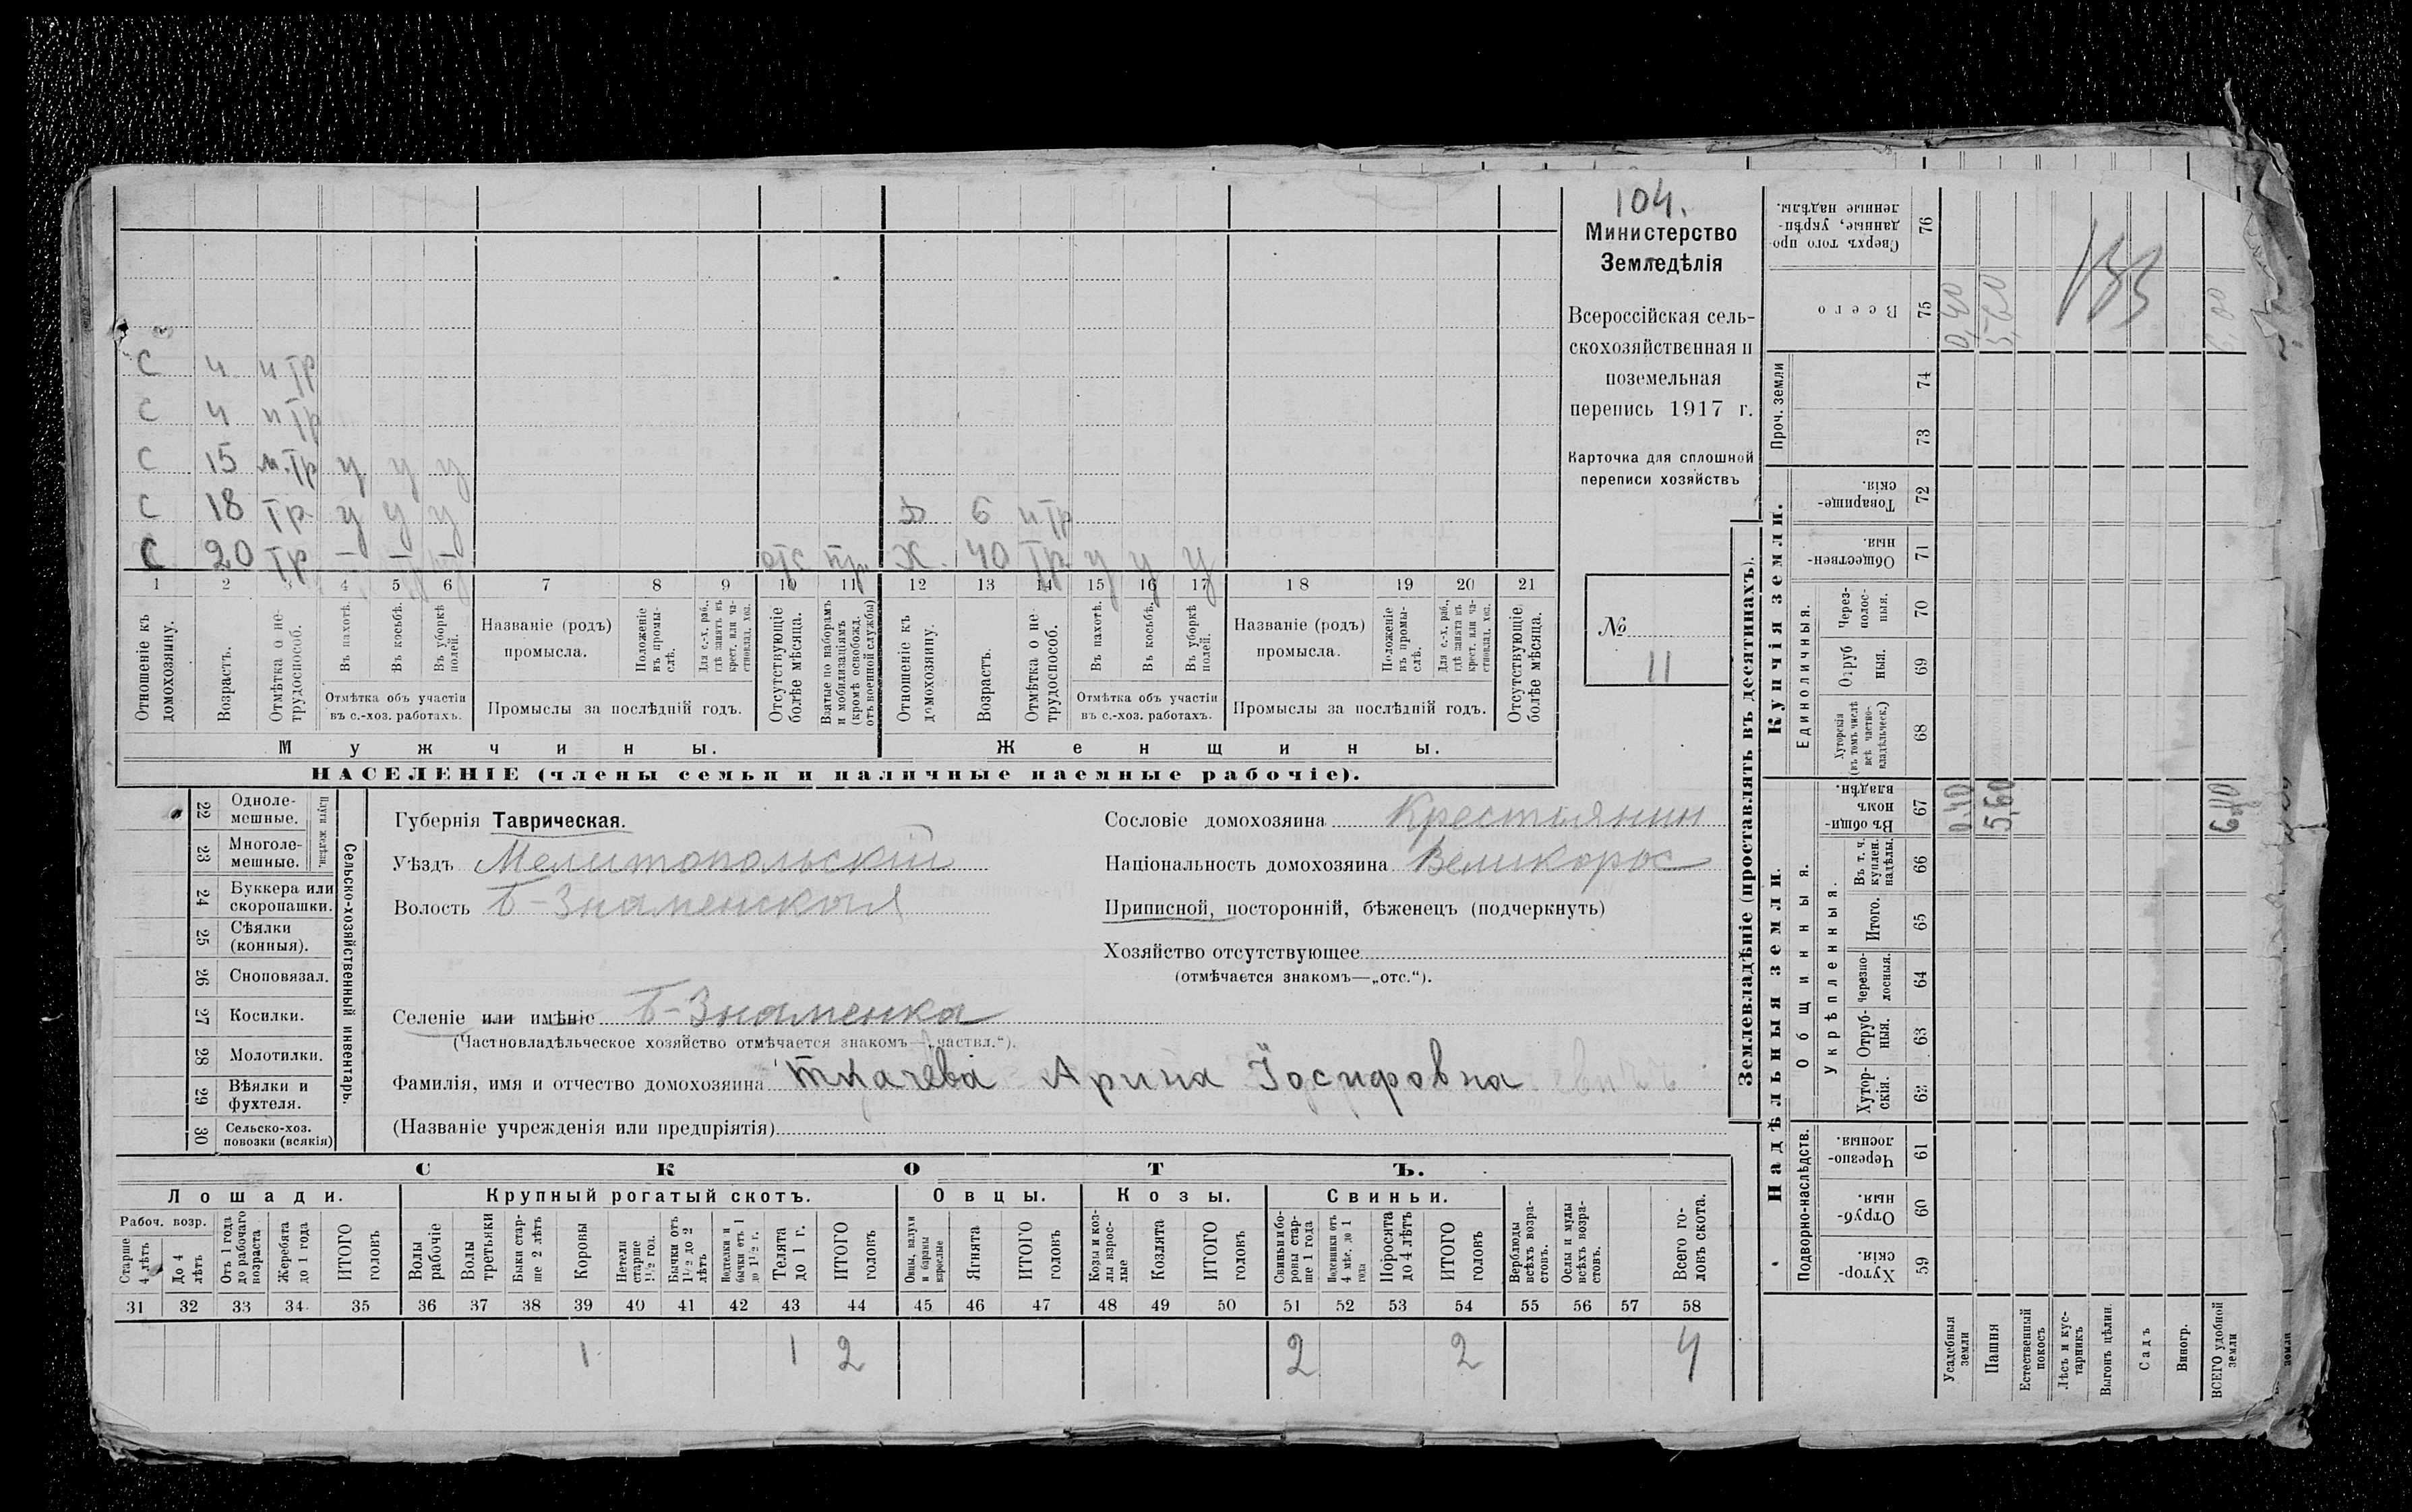 104.
Министерство
Земледѣлія
Всероссійская сель-
скохозяйственная и
поземельная
перепись 1917 г.
Карточка для сплошной
переписи хозяйствъ
№
11
С 4 н тр
С 4 н тр
С 15 м. тр у у у
С 18 тр у у у
6 н тр
С 20 тр — — — отс Ж. 40 тр у у у
1 2 3 4 5 6 7 8 9 10 11 12 13 14 15 16 17 18 19 20 21
Отношеніе къ домохозяину.
Возрастъ.
Отмѣтка о не-трудоспособ.
Въ пахотѣ.
Въ косьбѣ.
Въ уборкѣ полей.
Отмѣтка объ участіи
въ с.-хоз. работахъ.
Названіе (родъ)
промысла.
Положеніе въ промы-слѣ.
Для с.-х. раб., гдѣ занятъ въ крест. или ча-стновлад. хоз.
Промыслы за послѣдній годъ.
Отсутствующіе болѣе мѣсяца.
Взятые по наборамъ и мобилизаціямъ (кромѣ освобожд. отъ военной службы)
Отношеніе къ домохозяину.
Возрастъ.
Отмѣтка о не-трудоспособ.
Въ пахотѣ.
Въ косьбѣ.
Въ уборкѣ полей.
Отмѣтка объ участіи
въ с.-хоз. работахъ.
Названіе (родъ)
промысла.
Положеніе въ промы-слѣ.
Для с.-х. раб., гдѣ занята въ крест. или ча-стновлад. хоз.
Промыслы за послѣдній годъ.
Отсутствующіе болѣе мѣсяца.
Мужчины. Женщины.
НАСЕЛЕНІЕ (члены семьи и наличные наемные рабочіе).
22 Одноле-мешные.
23 Многоле-мешные.
Плуги желѣзн.
24 Буккера или скоропашки.
25 Сѣялки (конныя).
26 Сноповязал.
27 Косилки.
28 Молотилки.
29 Вѣялки и фухтеля.
30 Сельско-хоз. повозки (всякія)
Сельско-хозяйственный инвентарь.
Губернія Таврическая.
Уѣздъ Мелитопольский
Волость Б-Знаменская
Селеніе или имѣніе Б-Знаменка
(Частновладѣльческое хозяйство отмѣчается знакомъ—„частвл.“).
Фамилія, имя и отчество домохозяина Ткачева Арина Іосифовна
(Названіе учрежденія или предпріятія)
Сословіе домохозяина Крестьянин
Національность домохозяина Великорос
Приписной, посторонній, бѣженецъ (подчеркнуть)
Хозяйство отсутствующее
(отмѣчается знакомъ—„отс.“).
СКОТЪ.
Лошади. Крупный рогатый скотъ. Овцы. Козы. Свиньи.
Рабоч. возр.
Старше 4 лѣтъ
До 4 лѣтъ
Отъ 1 года до рабочаго возраста
Жеребята до 1 года
ИТОГО головъ
Волы рабочіе
Волы третьяки
Быки стар-ше 2 лѣтъ
Коровы
Нетели старше 1½ год.
Бычки отъ 1½ до 2 лѣтъ
Подтелки и бычки отъ 1 до 1½ г.
Телята до 1 г.
ИТОГО головъ
Овцы, валухи и бараны взрослые
Ягнята
ИТОГО головъ
Козы и коз-лы взрос-лые
Козлята
ИТОГО головъ
Свиньи и бо-ровы стар-ше 1 года
Подсвинки отъ 4 мѣс. до 1 года
Поросята до 4 лѣтъ
ИТОГО головъ
Верблюды всѣхъ возра-стовъ.
Ослы и мулы всѣхъ возра-стовъ.
Всего го-ловъ скота.
31 32 33 34 35 36 37 38 39 40 41 42 43 44 45 46 47 48 49 50 51 52 53 54 55 56 57 58
1 1 2 2 2 4
Землевладѣніе (проставлять въ десятинахъ).
Надѣльныя земли. Купчія земли. Проч. земли
Подворно-наслѣдств.
Общинныя.
Укрѣпленныя.
Единоличныя.
Хутор-скія. 59
Отруб-ныя. 60
Черезпо-лосныя. 61
Хутор-скія. 62
Отруб-ныя. 63
Черезпо-лосныя. 64
Итого. 65
Въ т. ч. куплен. надѣлы. 66
Въ общин-номъ владѣн. 67
Хуторскія (въ томъ числѣ всѣ частно-владѣльческ.) 68
Отруб ныя. 69
Через-полос-ныя. 70
Обществен-ныя. 71
Товарище-скія. 72
73
74
Всего 75
Сверхъ того про-данные, укрѣп-ленные надѣлы. 76
Усадебныя земли 0,40 0,40
Пашня 5,60 5,60
Естественный покосъ
Лѣсъ и кус-тарникъ
Выгонъ цѣлин.
Садъ
Виногр.
ВСЕГО удобной земли
земли